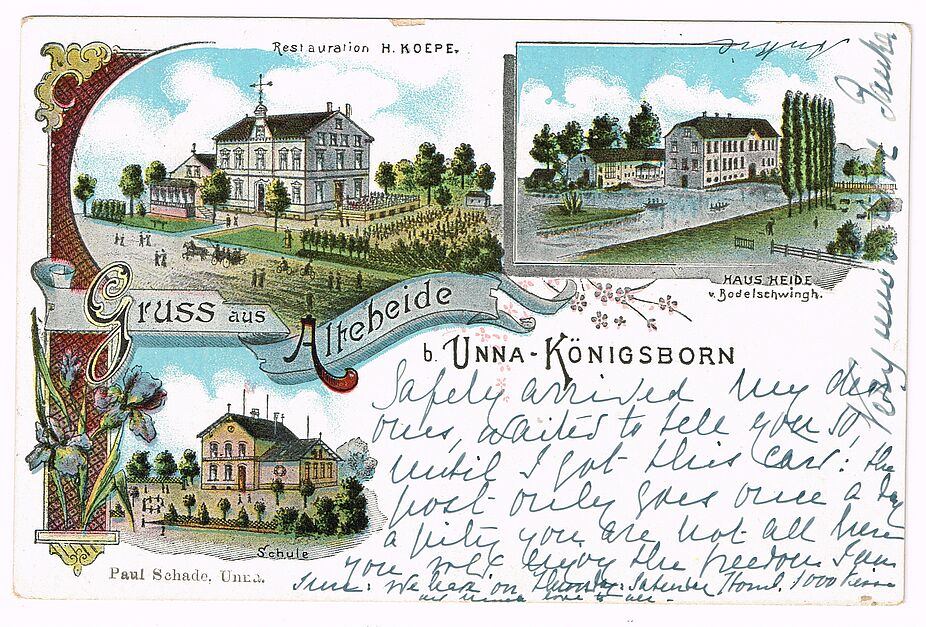 Restauration H. KOEPE.
HAUS HEIDE
v. Bodelschwingh.
GRUSS aus Alteheide
b. UNNA-KÖNIGSBORN
Schule
Paul Schade, Unna.
Safely arrived my dear
ones, waited to tell you so,
until I got this Card: the
post only goes once a day
a pity you are not all here
you wld enjoy the freedom I am
sure: we on 1000 kisses
much love to all.
very much